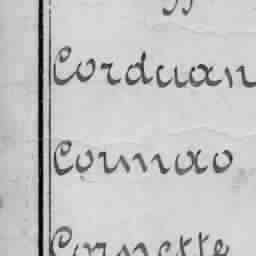 Corduan
Cormao
Cornette